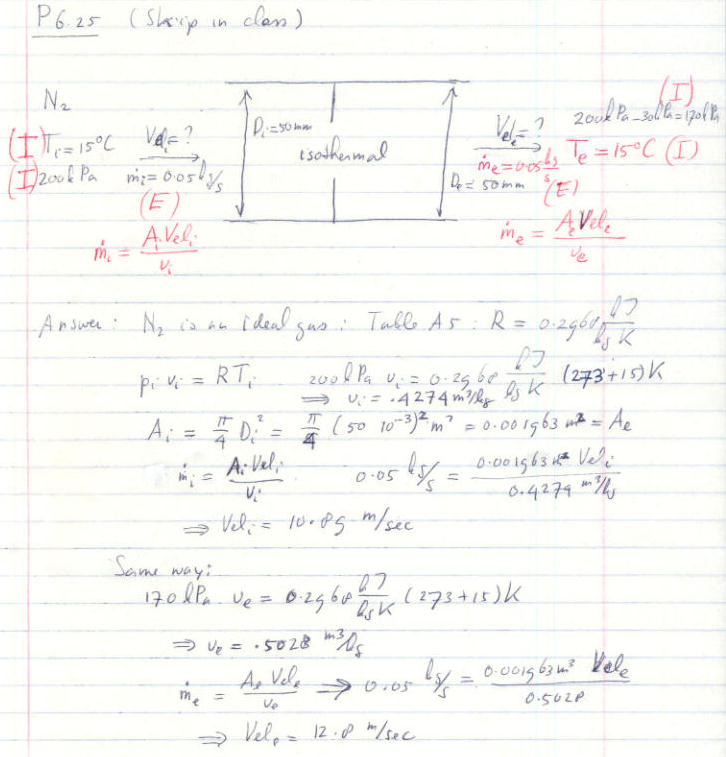 P6.25 (Skip in class)
N₂
(I) Tᵢ = 15°C
(I) 200 kPa
Velᵢ = ?
ṁᵢ = 0.05 kg/s
(E)
ṁᵢ = Aᵢ Velᵢ / vᵢ
Dᵢ = 50 mm
isothermal
Dₑ = 50 mm
Velₑ = ?
ṁₑ = 0.05 kg/s
(E)
(I)
200 kPa – 30 kPa = 170 kPa
Tₑ = 15°C (I)
ṁₑ = Aₑ Velₑ / vₑ
Answer: N₂ is an ideal gas: Table A5: R = 0.2968 kJ/kg K
pᵢ vᵢ = RTᵢ 200 kPa vᵢ = 0.2968 kJ/kg K (273+15) K
⇒ vᵢ = .4274 m³/kg
Aᵢ = π/4 Dᵢ² = π/4 (50 10⁻³)² m² = 0.001963 m² = Aₑ
ṁᵢ = Aᵢ Velᵢ / vᵢ 0.05 kg/s = 0.001963 m² Velᵢ / 0.4274 m³/kg
⇒ Velᵢ = 10.89 m/sec
Same way:
170 kPa vₑ = 0.2968 kJ/kg K (273+15) K
⇒ vₑ = .5028 m³/kg
ṁₑ = Aₑ Velₑ / vₑ ⇒ 0.05 kg/s = 0.001963 m² Velₑ / 0.5028
⇒ Velₑ = 12.8 m/sec